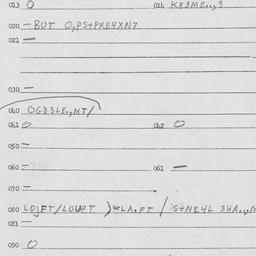 013 O 014 K83ME..,3
020 – BUT O,PS+PRE4XN7
021 –
030 –
040 OG83LE.,MT/
041 O 042 O
050 –
060 – 061 –
070 –
080 LOJFT/LOUPT )=LA.FT / S+NE4L 3HA..,
081 –
090 O